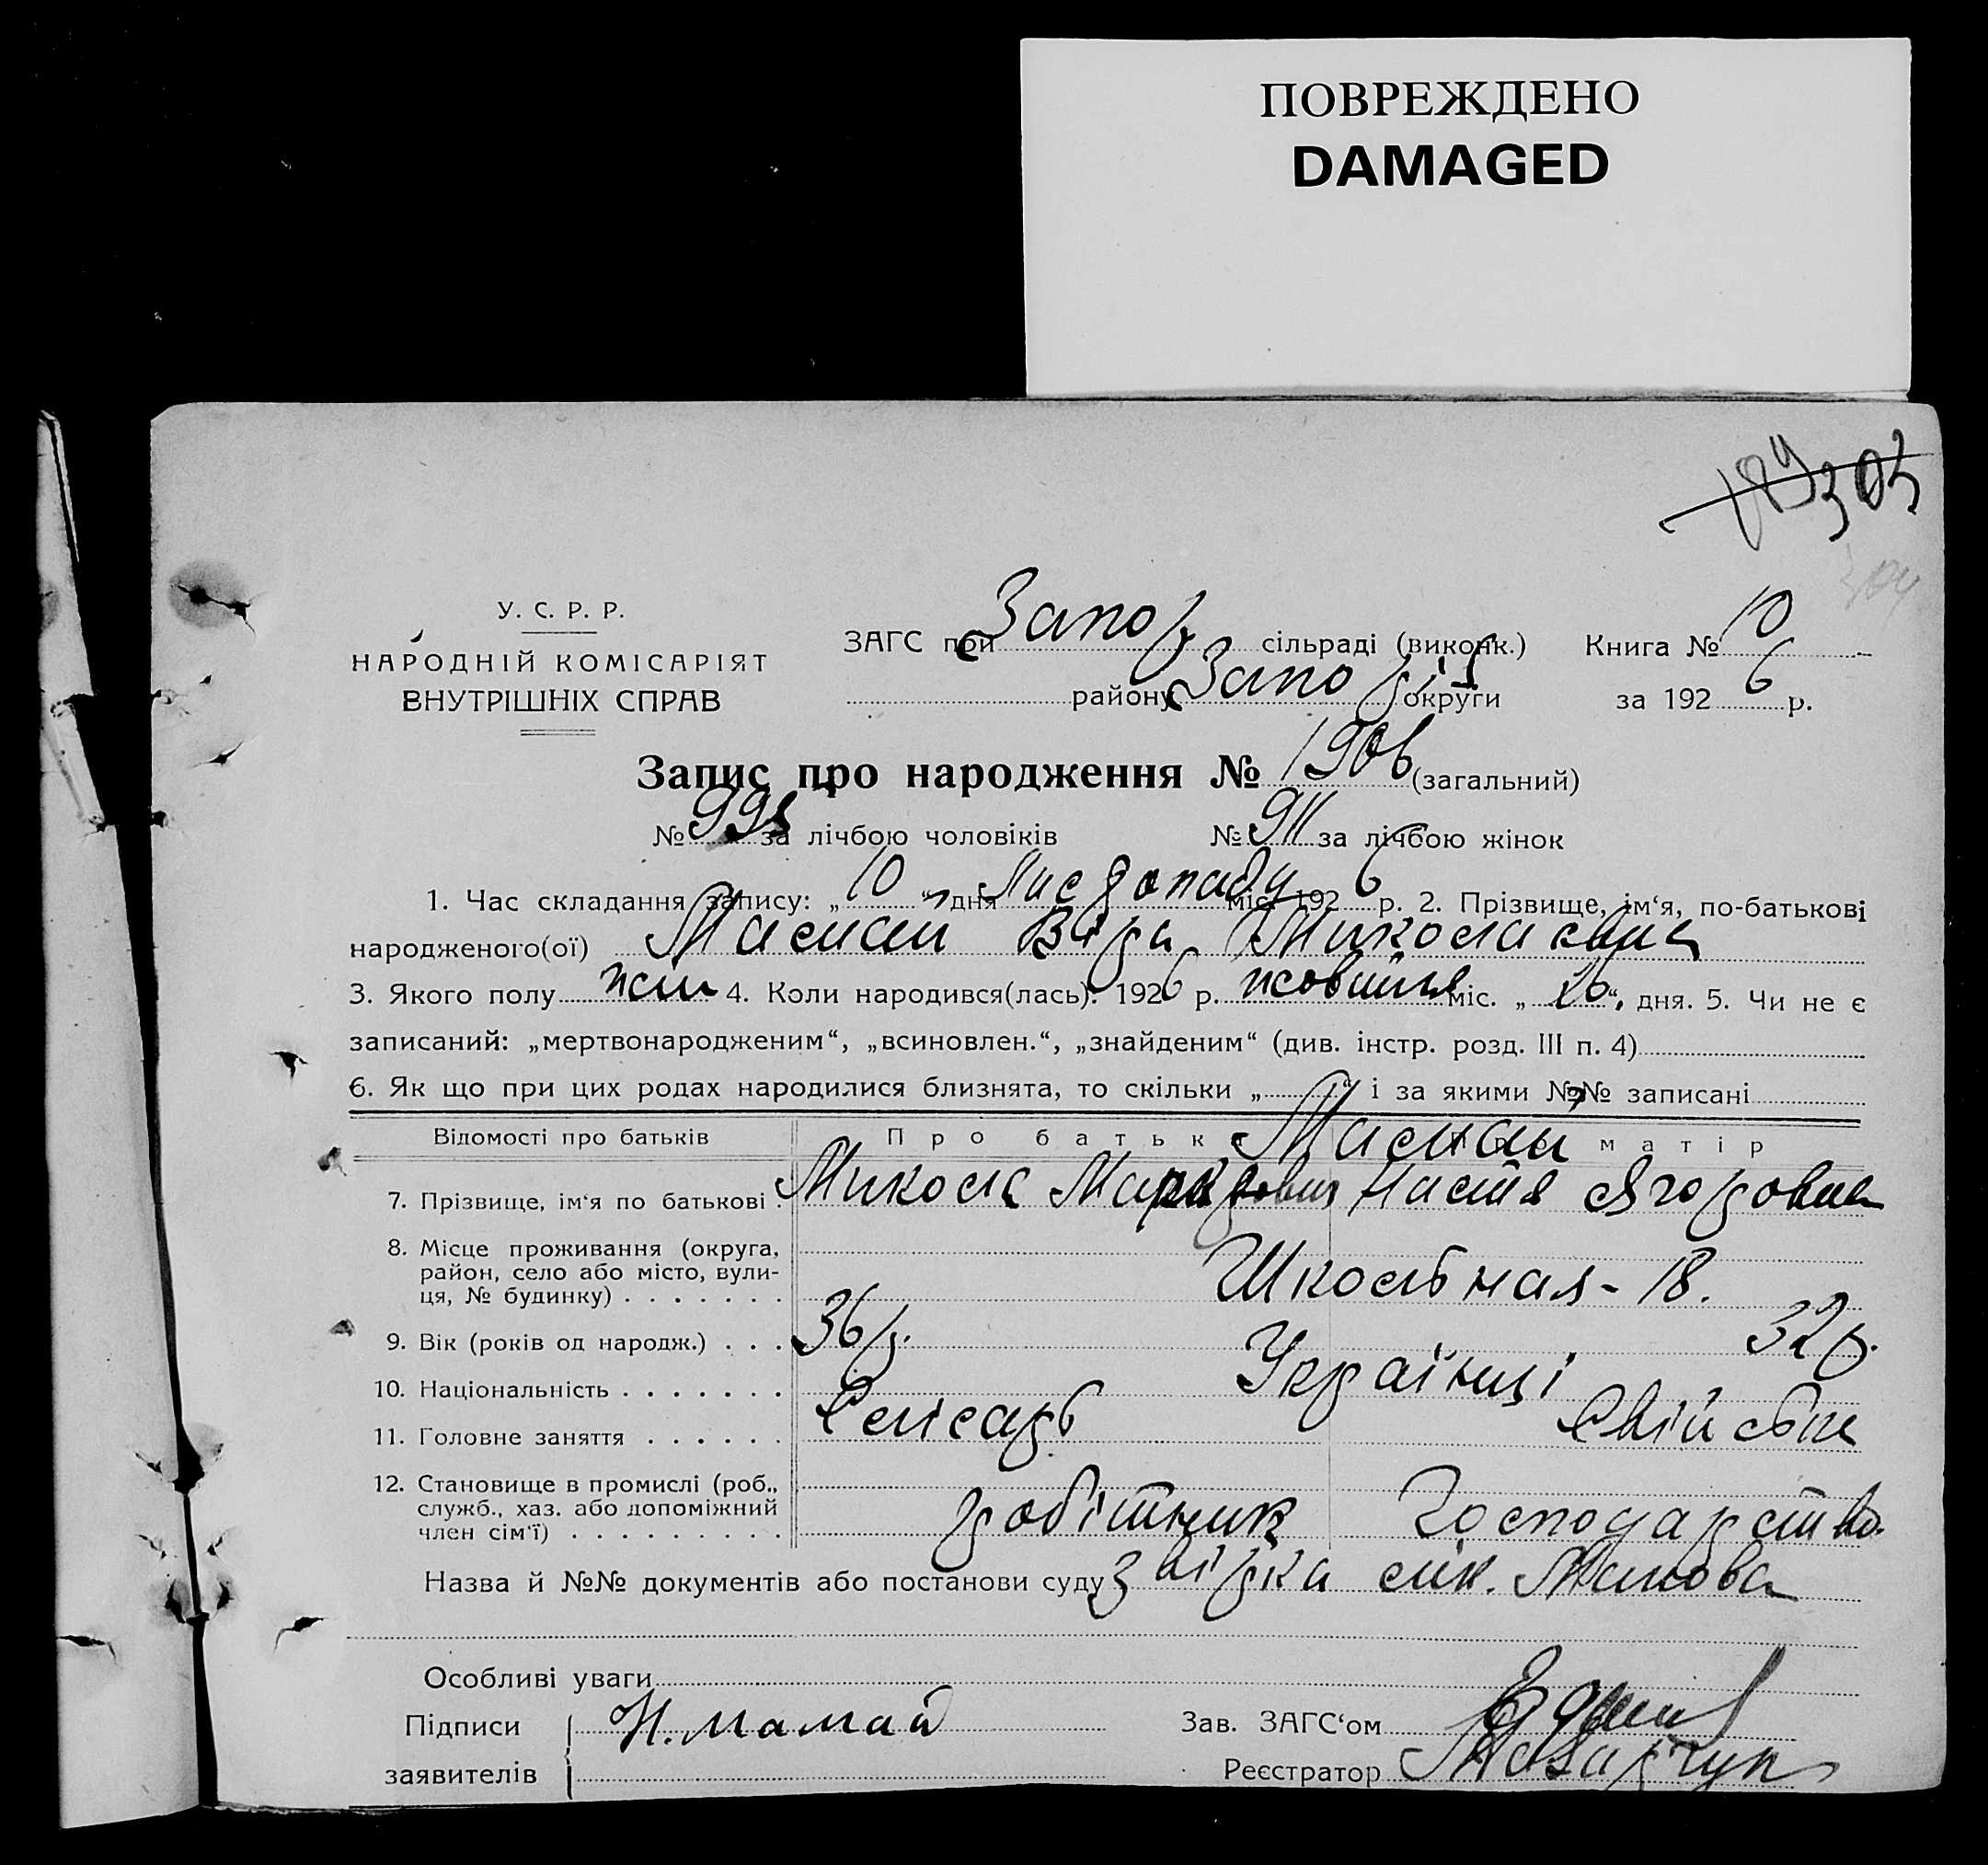 ПОВРЕЖДЕНО
DAMAGED
189 303
304
У. С. Р. Р.
НАРОДНІЙ КОМІСАРІЯТ
ВНУТРІШНІХ СПРАВ
ЗАГС при Запор сільраді (виконк.) Книга № 10
району Запоріз округи за 1926 р.
Запис про народження № 1906 (загальний)
№ 995 за лічбою чоловіків № 911 за лічбою жінок
1. Час складання запису: „10“ дня Листопаду міс. 1926 р. 2. Прізвище, ім‘я, по-батькові
народженого(ої) Мамай Віра Миколаєвна
3. Якого полу жін 4. Коли народився(лась): 1926 р. жовтня міс. „26“, дня. 5. Чи не є
записаний: „мертвонародженим“, „всиновлен.“, „знайденим“ (див. інстр. розд. III п. 4)
6. Як що при цих родах народилися близнята, то скільки „ “ і за якими №№ записані
Відомості про батьків Про батька Мамай Про матір
7. Прізвище, ім‘я по батькові Микола Настя Ягоровна
8. Місце проживання (округа,
район, село або місто, вули-
ця, № будинку) Школьная - 18.
9. Вік (років од народж.) 36 р. 32 р.
10. Національність Українці
11. Головне заняття Слісарь
12. Становище в промислі (роб.,
служб., хаз. або допоміжний
член сім‘ї) робітник господарство.
Назва й №№ документів або постанови суду
Особливі уваги
Підписи Н. Мамай Зав. ЗАГС‘ом
заявителів Реєстратор